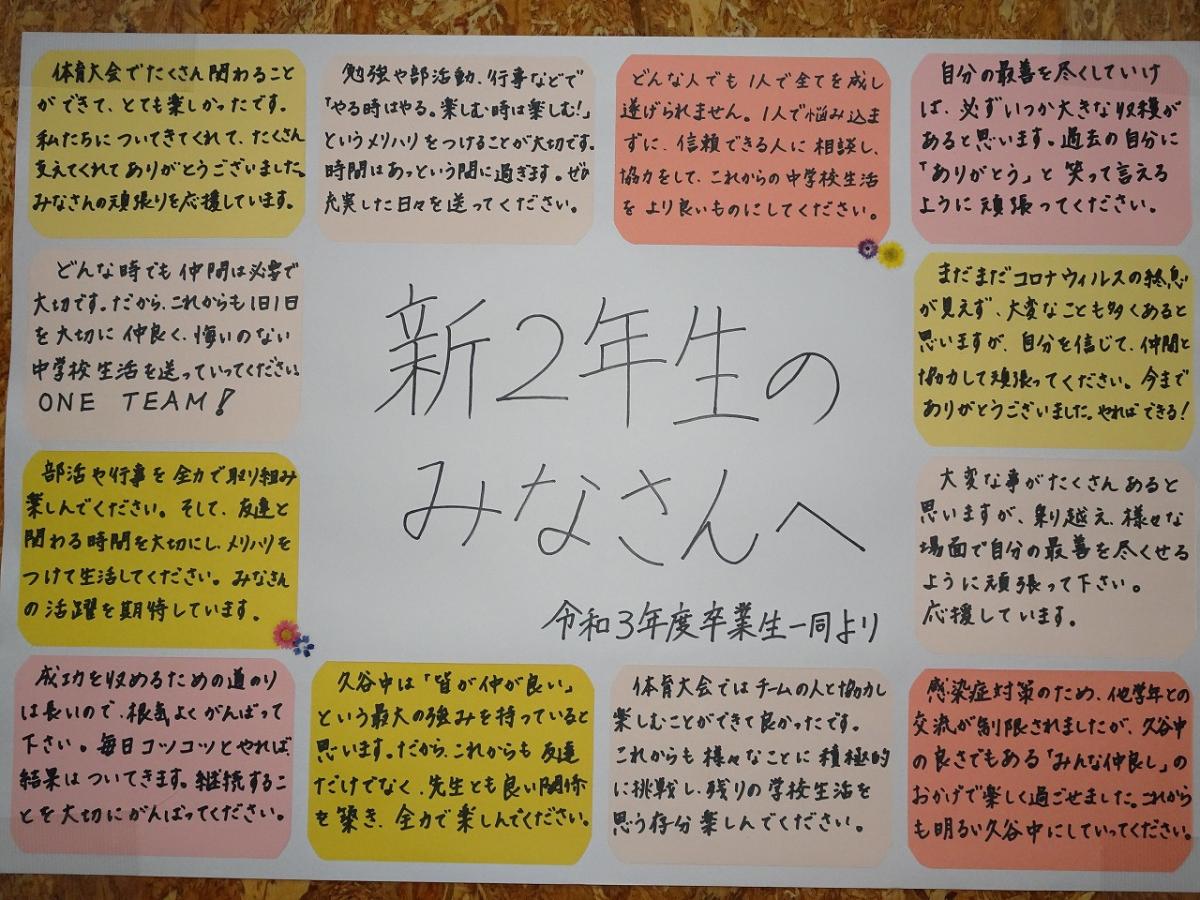 体育大会でたくさん関わること
ができて、とても楽しかったです。
私たちについてきてくれて、たくさん
支えてくれてありがとうございました。
みなさんの頑張りを応援しています。
勉強や部活動、行事などで
「やる時はやる。楽しむ時は楽しむ!」
というメリハリをつけることが大切です。
時間はあっという間に過ぎます。ぜひ
充実した日々を送ってください。
どんな人でも1人で全てを成し
遂げられません。1人で悩み込ま
ずに、信頼できる人に相談し、
協力をして、これからの中学校生活
をより良いものにしてください。
自分の最善を尽くしていけ
ば、必ずいつか大きな収穫が
あると思います。過去の自分に
「ありがとう」と笑って言える
ように頑張ってください。
どんな時でも仲間は必要で
大切です。だから、これからも1日1日
を大切に仲良く、悔いのない
中学校生活を送っていってください。
ONE TEAM!
新2年生の
みなさんへ
令和3年度卒業生一同より
まだまだコロナウィルスの終息
が見えず、大変なことも多くあると
思いますが、自分を信じて、仲間と
協力して頑張ってください。今まで
ありがとうございました。やればできる!
部活や行事を全力で取り組み
楽しんでください。そして、友達と
関わる時間を大切にし、メリハリを
つけて生活してください。みなさん
の活躍を期待しています。
大変な事がたくさんあると
思いますが、乗り越え、様々な
場面で自分の最善を尽くせる
ように頑張って下さい。
応援しています。
成功を収めるための道のり
は長いので、根気よくがんばって
下さい。毎日コツコツとやれば、
結果はついてきます。継続するこ
とを大切にがんばってください。
久谷中は「皆が仲が良い」
という最大の強みを持っていると
思います。だから、これからも友達
だけでなく、先生とも良い関係
を築き、全力で楽しんでください。
体育大会ではチームの人と協力し
楽しむことができて良かったです。
これからも様々なことに積極的
に挑戦し、残りの学校生活を
思う存分楽しんでください。
感染症対策のため、他学年との
交流が制限されましたが、久谷中
の良さでもある「みんな仲良し」の
おかげで楽しく過ごせました。これから
も明るい久谷中にしていってください。